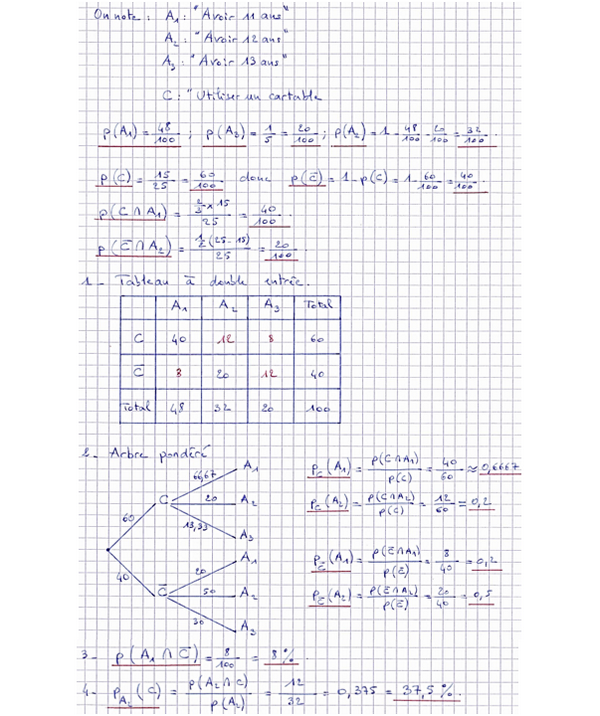 On note : A₁ : "Avoir 11 ans"
A₂ : "Avoir 12 ans"
A₃ : "Avoir 13 ans"
C : "Utiliser un cartable
p(A₁) = 48/100 ; p(A₃) = 1/5 = 20/100 ; p(A₂) = 1 - 48/100 - 20/100 = 32/100 .
p(C) = 15/25 = 60/100 donc p(C̄) = 1 - p(C) = 1 - 60/100 = 40/100 .
p(C ∩ A₁) = (2/3 × 15)/25 = 40/100 .
p(C̄ ∩ A₂) = (1/2 (25 - 15))/25 = 20/100 .
1 - Tableau à double entrée.
A₁ A₂ A₃ Total
C 40 12 8 60
C̄ 8 20 12 40
Total 48 32 20 100
2 - Arbre pondéré
60 C 66,67 A₁
20 A₂
13,33 A₃
40 C̄ 20 A₁
50 A₂
30 A₃
p_C(A₁) = p(C∩A₁)/p(C) = 40/60 ≈ 0,6667
p_C(A₂) = p(C∩A₂)/p(C) = 12/60 = 0,2
p_C̄(A₁) = p(C̄∩A₁)/p(C̄) = 8/40 = 0,2
p_C̄(A₂) = p(C̄∩A₂)/p(C̄) = 20/40 = 0,5
3 - p(A₁ ∩ C̄) = 8/100 = 8 %
4 - p_A₂(C) = p(A₂ ∩ C)/p(A₂) = 12/32 = 0,375 = 37,5 % .